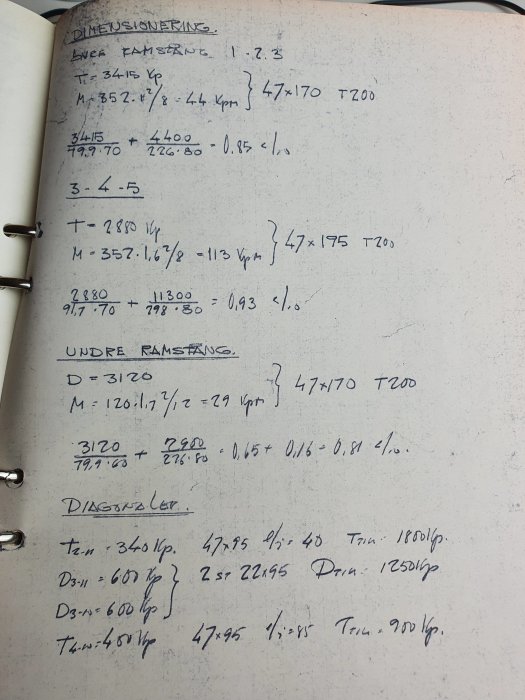 DIMENSIONERING.
ÖVRE RAMSTÅNG 1-2-3
T = 3415 Kp
M = 352·1²/8 = 44 Kpm } 47×170 T200
3415/79,9·70 + 4400/226·80 = 0,85 < 1,0
3-4-5
T = 2880 Kp
M = 352·1,6²/8 = 113 Kpm } 47×195 T200
2880/91,7·70 + 11300/298·80 = 0,93 < 1,0
UNDRE RAMSTÅNG.
D = 3120
M = 120·1,7²/12 = 29 Kpm } 47×170 T200
3120/79,9·60 + 2900/226·80 = 0,65 + 0,16 = 0,81 < 1,0.
DIAGONALER.
T2-11 = 340 Kp. 47×95 l/i = 40 Ttill = 1800 Kp.
D3-11 = 600 Kp } 2 st 22×95 Dtill = 1250 Kp
D3-10 = 600 Kp
T4-10 = 400 Kp 47×95 l/i = 85 Ttill = 900 Kp.